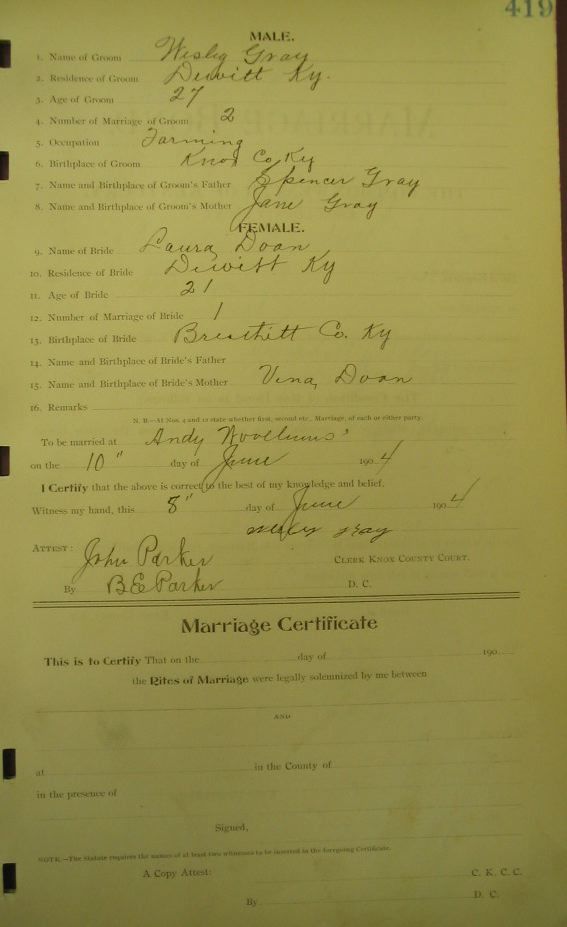 419
MALE.
1. Name of Groom Wesly Gray
2. Residence of Groom Dewitt Ky.
3. Age of Groom 27
4. Number of Marriage of Groom 2
5. Occupation Farming
6. Birthplace of Groom Knox Co, Ky
7. Name and Birthplace of Groom's Father Spencer Gray
8. Name and Birthplace of Groom's Mother Jane Gray
FEMALE.
9. Name of Bride Laura Doan
10. Residence of Bride Dewitt Ky
11. Age of Bride 21
12. Number of Marriage of Bride 1
13. Birthplace of Bride Breathitt Co. Ky
14. Name and Birthplace of Bride's Father
15. Name and Birthplace of Bride's Mother Vina Doan
16. Remarks
N. B.—At Nos. 4 and 12 state whether first, second etc., Marriage, of each or either party.
To be married at Andy
on the 10" day of June 1904
I Certify that the above is correct to the best of my knowledge and belief.
Witness my hand, this 8" day of June 1904
Wesley Gray
ATTEST: John Parker CLERK KNOX COUNTY COURT.
By B E Parker D. C.
Marriage Certificate
This is to Certify That on the day of 190
the Rites of Marriage were legally solemnized by me between
AND
at in the County of
in the presence of
Signed,
NOTE.—The Statute requires the names of at least two witnesses to be inserted in the foregoing Certificate.
A Copy Attest: C. K. C. C.
By D. C.